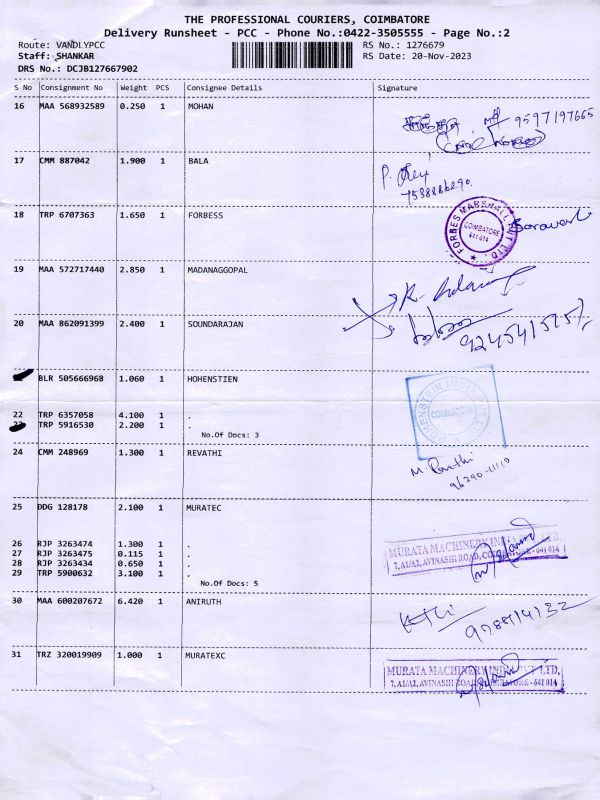 THE PROFESSIONAL COURIERS, COIMBATORE
Delivery Runsheet - PCC - Phone No.:0422-3505555 - Page No.:2
Route: VANDLYPCC RS No.: 1276679
Staff: SHANKAR RS Date: 20-Nov-2023
DRS No.: DCJB127667902
S No Consignment No Weight PCS Consignee Details Signature
16 MAA 568932589 0.250 1 MOHAN
9597197665
17 CMM 887042 1.900 1 BALA
P.
7538886290.
18 TRP 6707363 1.650 1 FORBESS
FORBES MARSHALL PVT LTD
COIMBATORE
641 014
19 MAA 572717440 2.850 1 MADANAGGOPAL
20 MAA 862091399 2.400 1 SOUNDARAJAN
BLR 505666968 1.060 1 HOHENSTIEN
HOHENSTEIN INDIA PVT LTD
COIMBATORE
22 TRP 6357058 4.100 1 .
TRP 5916530 2.200 1 .
No.Of Docs: 3
24 CMM 248969 1.300 1 REVATHI
M. Revathi
96290-11119
25 DDG 128178 2.100 1 MURATEC
26 RJP 3263474 1.300 1 .
27 RJP 3263475 0.115 1 .
28 RJP 3263434 0.650 1 .
29 TRP 5900632 3.100 1 .
No.Of Docs: 5
MURATA MACHINERY INDIA PVT LTD,
7, A1/A2, AVINASHI ROAD, COIMBATORE - 641 014
30 MAA 600207672 6.420 1 ANIRUTH
31 TRZ 320019909 1.000 1 MURATEXC
MURATA MACHINERY INDIA PVT LTD,
7, A1/A2, AVINASHI ROAD, COIMBATORE - 641 014